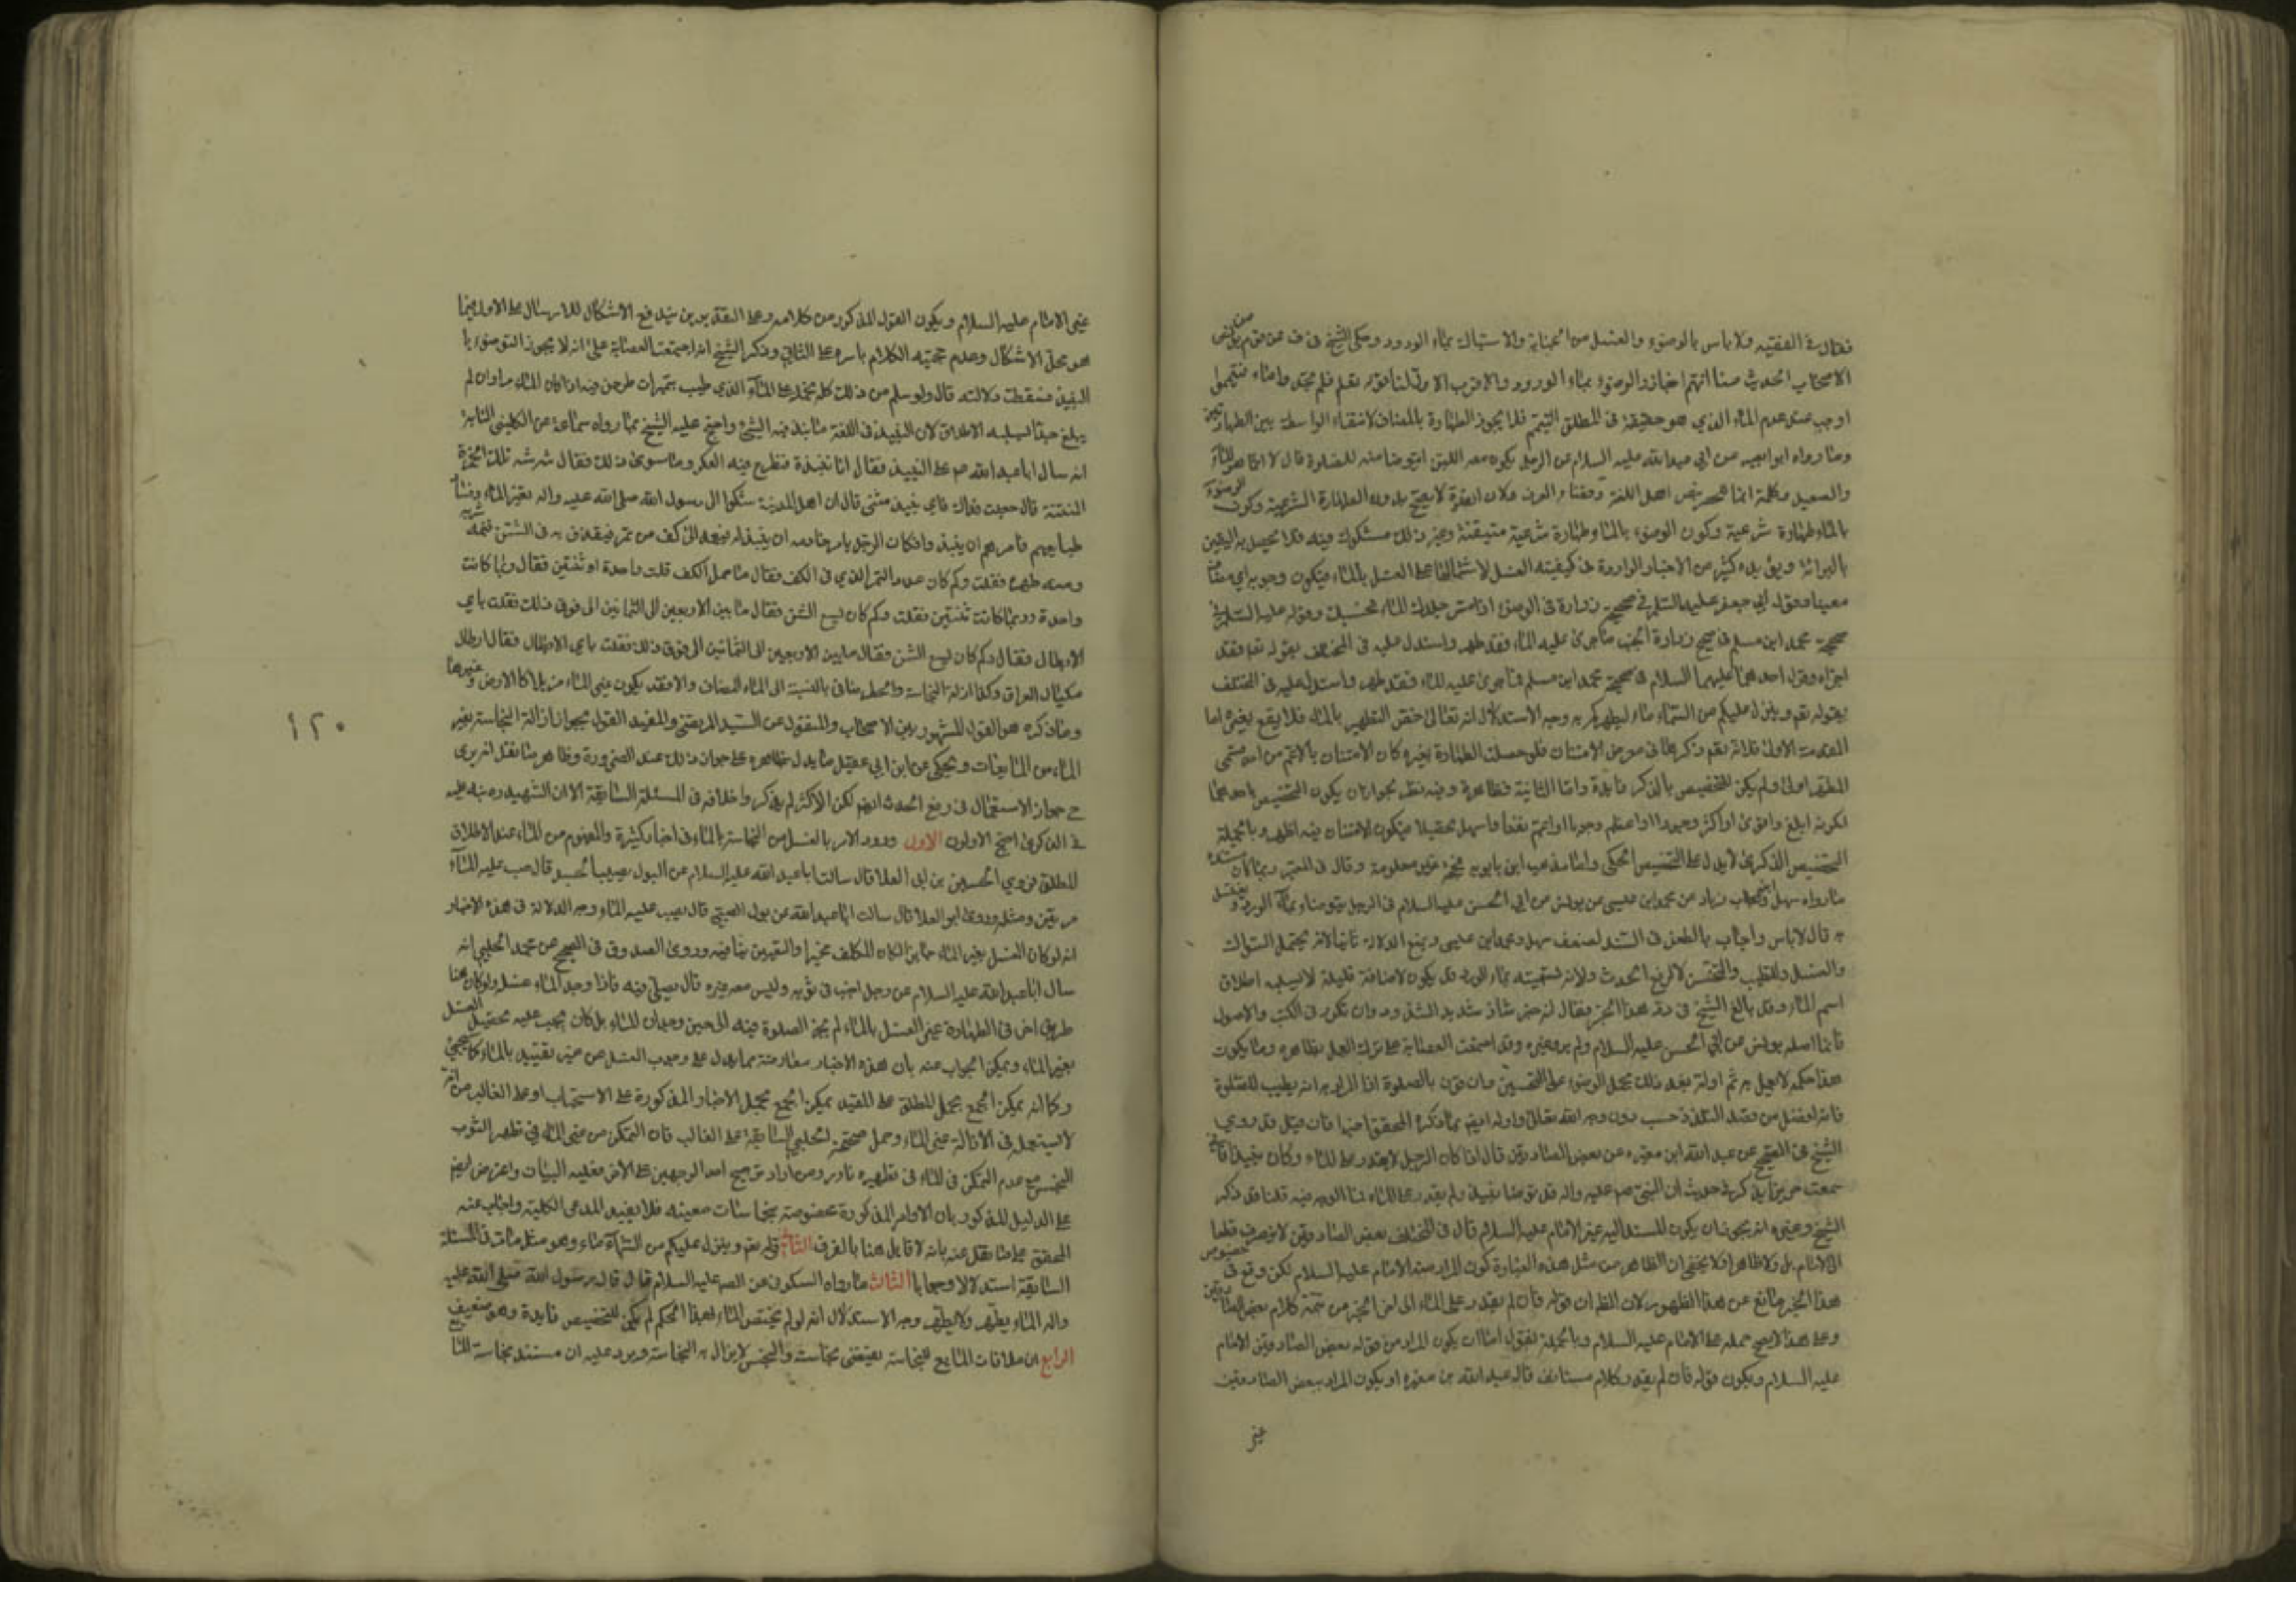 فقال في الفقيه ولا باس بالوضوء والغسل من الجنابة والاستياك بماء الورد وحكى الشيخ في ف عن قوم من
الاصحاب الحديث منا انهم اجازوا الوضوء بماء الورد والاقرب الاول لنا قوله تعالى فلم تجدوا ماء فتيمموا
اوجب عند عدم الماء الذي هو حقيقة في المطلق التيمم فلا يجوز الطهارة بالمضاف لانتفاء الواسطة بين الطهارتين
وما رواه ابو بصير عن ابي عبد الله عليه السلام عن الرجل يكون معه اللبن ايتوضا منه للصلوة قال لا انما هو الماء
والصعيد وكلمة انما للحصر بنص اهل اللغة ولان الصلوة لا يصح بدون الطهارة الشرعية وكون الوضوء
بالماء طهارة شرعية وكون الوضوء بالماء طهارة شرعية متيقنة وغير ذلك مشكوك فيه فلا يحصل به اليقين
بالبرائة ويؤيده كثير من الاخبار الواردة في كيفية الغسل لاشتمالها على الغسل بالماء فيكون وجوبه
معينا وقول ابي جعفر عليه السلام في صحيحة زرارة في الوضوء اذا مس جلدك الماء فحسبك وقوله عليه السلام في
صحيحة محمد ابن مسلم في صحيح زرارة الجنب ما جرى عليه الماء فقد طهر واستدل عليه في المختلف بقوله تعالى فقد
اجزاه وقول احدهما عليهما السلام في صحيحة محمد ابن مسلم فما جرى عليه الماء فقد طهر واستدل عليه في المختلف
بقوله تعالى وينزل عليكم من السماء ماء ليطهركم به وجه الاستدلال انه تعالى خص التطهير بالماء فلا يقع بغيره اما
المقدمة الاولى فلانه تعالى ذكرها في معرض الامتنان فلو حصلت الطهارة بغيره كان الامتنان بالاعم من احد قسمي
المطهر اولى ولم يكن للتخصيص بالذكر فائدة واما الثانية فظاهرة وفيه نظر لجواز ان يكون التخصيص باحدهما
لكونه ابلغ واقوى او اكثر وجودا او اعظم وجودا او اعم نفعا واسهل تحصيلا فيكون الامتنان فيه اظهر وبالجملة
التخصيص الذكري لا يدل على التخصيص الحكمي واما مذهب ابن بابويه فحجته غير معلومة وقال في المعتبر ربما كان مستنده
ما رواه سهل بن زياد عن محمد ابن عيسى عن يونس عن ابي الحسن عليه السلام في الرجل يتوضاء بماء الورد ويغتسل
به قال لا باس واجاب بالطعن في السند لضعف سهل ومحمد ابن عيسى وبمنع الدلالة ثانيا لانه يحتمل السؤال
والغسل للتطيب والتحسن لا لرفع الحدث ولانه تسميته بماء الورد قد يكون لاضافة قليلة لا يسلبه اطلاق
اسم الماء وقد بالغ الشيخ في رد هذا الخبر فقال انه خبر شاذ شديد الشذوذ وان تكرر في الكتب والاصول
فانما اصله يونس عن ابي الحسن عليه السلام ولم يروه غيره وقد اجمعت العصابة على ترك العمل بظاهره وما يكون
هذا حكمه لا يعمل به ثم اوله بعد ذلك بحمل الوضوء على التحسين وان قرن بالصلوة اذا المراد به انه يطيب للصلوة
فانه افضل من قصد التلذذ حسب دون وجه الله تعالى واوله ايضا بما ذكره المحقق اخيرا فان قيل قد روى
الشيخ في الصحيح عن عبد الله ابن مغيرة عن بعض الصادقين قال اذا كان الرجل لا يقدر على الماء وكان نبيذا فاني
سمعت حريزا يذكر في حديث ان النبي صلى الله عليه واله قد توضا بنبيذ ولم يقدر على الماء فما الوجه فيه قلنا قد ذكر
الشيخ وغيره انه يجوز ان يكون المسند اليه غير الامام عليه السلام قال في المختلف بعض الصادقين لا ينصرف قطعا
الى الامام بل ولا ظاهرا ولا يخفى ان الظاهر من مثل هذه العبارة كون المراد منه الامام عليه السلام لكن وقع في خصوص
هذا الخبر مانع عن هذا الظهور لان الظ ان قوله فان لم يقدر على الماء الى اخر الخبر من تتمة كلام بعض الصادقين
وعلى هذا لا يصح حمله على الامام عليه السلام وبالجملة نقول اما ان يكون المراد من قوله بعض الصادقين الامام
عليه السلام ويكون قوله فان لم يقدر كلام مستانف قاله عبد الله بن مغيرة او يكون المراد ببعض الصادقين
غير
غير الامام عليه السلام ويكون القول المذكور من كلامه وعلى التقديرين يندفع الاشكال للارسال على الاول فيما
هو محل الاشكال وعدم حجية الكلام باسره على الثاني وذكر الشيخ انه اجمعت العصابة على انه لا يجوز التوضوء با
النبيذ فسقطت دلالته قال ولو سلم من ذلك كله نحمله على الماء الذي طيب بتميرات طرحن فيه اذا كان الماء مرا وان لم
يبلغ حدا يسلبه الاطلاق لان النبيذ في اللغة ما ينبذ فيه الشيء واحتج عليه الشيخ بما رواه سماعة عن الكلبي النسابة
انه سال ابا عبد الله ع عن النبيذ فقال انا ننبذه فنطرح فيه العكر وما سوى ذلك فقال شه شه تلك الخمرة
المنتنة قال جعلت فداك فاي نبيذ تعني قال ان اهل المدينة شكوا الى رسول الله صلى الله عليه واله تغير الماء وفساد
طبايعهم فامرهم ان ينبذوا فكان الرجل يامر خادمه ان ينبذ له فيعمد الى كف من تمر فيقذف به في الشن فمنه شربه
ومنه طهره فقلت وكم كان عدد التمر الذي في الكف فقال ما حمل الكف قلت واحدة او ثنتين فقال ربما كانت
واحدة وربما كانت ثنتين فقلت وكم كان يسع الشن فقال ما بين الاربعين الى الثمانين الى فوق ذلك فقلت باي
الارطال فقال وكم كان يسع الشن فقال ما بين الاربعين الى الثمانين الى فوق ذلك فقلت باي الارطال فقال ارطال
مكيال العراق وكذا ازالة النجاسة بالنسبة الى الماء المضاف والا فقد يكون غير الماء مزيلا كالارض وغيرها
وما ذكره هو القول المشهور بين الاصحاب والمنقول عن السيد المرتضى والمفيد القول بجواز ازالة النجاسة بغير
الماء من المائعات ويحكى عن ابن ابي عقيل ما يدل بظاهره على جواز ذلك عند الضرورة وظاهر ما نقل انه يرى
ح جواز الاستعمال في رفع الحدث ايضا لكن الاكثر لم يذكروا خلافه في المسئلة السابقة الا ان الشهيد ره نبه عليه
في الذكرى احتج الاولون الاول ورود الامر بالغسل من النجاسة بالماء في اخبار كثيرة والمفهوم من الماء عند الاطلاق
المطلق فروى الحسين بن ابي العلا قال سالت ابا عبد الله عليه السلام عن البول يصيب الجسد قال صب عليه الماء
مرتين ومثله وروى ابو العلا قال سالت ابا عبد الله عن بول الصبي قال يصب عليه الماء وجه الدلالة في هذه الاخبار
انه لو كان الغسل بغير الماء جايزا لكان المكلف مخيرا والتعيين ينافيه وروى الصدوق في الصحيح عن محمد الحلبي انه
سال ابا عبد الله عليه السلام عن رجل اجنب في ثوبه وليس معه غيره قال يصلي فيه فاذا وجد الماء غسله ولو كان هنا
طريق اخر في الطهارة غير الغسل بالماء لم يجز الصلوة فيه الى حين وجدان الماء بل كان يجب عليه تحصيل الغسل
بغير الماء ويمكن الجواب عنه بان هذه الاخبار معارضة بما يدل على وجوب الغسل من غير تقييد بالماء كما سيجيء
وكما انه يمكن الجمع بحمل المطلق على المقيد يمكن الجمع بحمل الاخبار المذكورة على الاستحباب او على الغالب من انه
لا يستعمل في الازالة غير الماء وحمل صحيحة الحلبي السابقة على الغالب فان التمكن من غير الماء في تطهير الثوب
النجس مع عدم التمكن من الماء في تطهيره نادر ومن اراد ترجيح احد الوجهين على الاخر فعليه البيان واعترض ايضا
على الدليل المذكور بان الاوامر المذكورة مخصوصة بنجاسات معينة فلا يفيد المدعى الكلية واجاب عنه
المحقق على ما نقل عنه بانه لا قايل هنا بالفرق الثاني قوله تعالى وينزل عليكم من السماء ماء وهو مثل ما مر في المسئلة
السابقة استدلالا وجوابا الثالث ما رواه السكوني عن الصم عليه السلام قال قال رسول الله صلى الله عليه
واله الماء يطهر ولا يطهر وجه الاستدلال انه لو لم يختص الماء بهذا الحكم لم يكن للتخصيص فايدة وهو ضعيف
الرابع ان ملاقات المائع للنجاسة يقتضي نجاسته والنجس لا يزال به النجاسة ويرد عليه ان مستند نجاسة الما
١٢٠